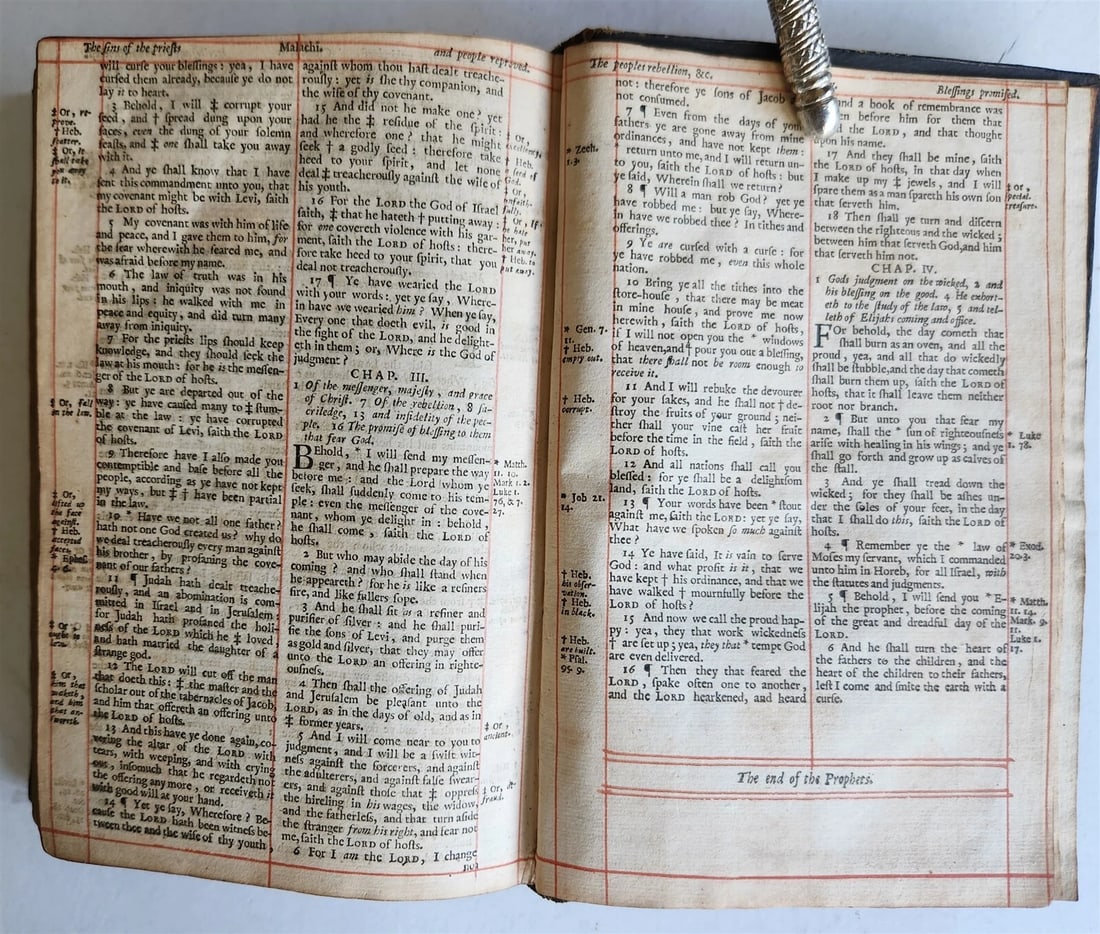 The ſins of the prieſts
Malachi.
and people reproved.
will curſe your bleſſings: yea, I have
curſed them already, becauſe ye do not
lay it to heart.
3 Behold, I will ‡ corrupt your
ſeed, and † ſpread dung upon your
faces, even the dung of your ſolemn
feaſts, and ‡ one ſhall take you away
with it.
4 And ye ſhall know that I have
ſent this commandment unto you, that
my covenant might be with Levi, ſaith
the LORD of hoſts.
5 My covenant was with him of life
and peace, and I gave them to him, for
the fear wherewith he feared me, and
was afraid before my name.
6 The law of truth was in his
mouth, and iniquity was not found
in his lips: he walked with me in
peace and equity, and did turn many
away from iniquity.
7 For the prieſts lips ſhould keep
knowledge, and they ſhould ſeek the
law at his mouth: for he is the meſſen-
ger of the LORD of hoſts.
8 But ye are departed out of the
way: ye have cauſed many to ‡ ſtum-
ble at the law: ye have corrupted
the covenant of Levi, ſaith the LORD
of hoſts.
9 Therefore have I alſo made you
contemptible and baſe before all the
people, according as ye have not kept
my ways, but ‡ † have been partial
in the law.
10 * Have we not all one father?
hath not one God created us? why do
we deal treacherouſly every man againſt
his brother, by profaning the cove-
nant of our fathers?
11 ¶ Judah hath dealt treache-
rouſly, and an abomination is com-
mitted in Iſrael and in Jeruſalem:
for Judah hath profaned the holi-
neſs of the LORD which he ‡ loved,
and hath married the daughter of a
ſtrange god.
12 The LORD will cut off the man
that doeth this: ‡ the maſter and the
ſcholar out of the tabernacles of Jacob,
and him that offereth an offering unto
the LORD of hoſts.
13 And this have ye done again, co-
vering the altar of the LORD with
tears, with weeping, and with crying
out, inſomuch that he regardeth not
the offering any more, or receiveth it
with good will at your hand.
14 ¶ Yet ye ſay, Wherefore? Be-
cauſe the LORD hath been witneſs be-
tween thee and the wife of thy youth,
‡ Or, re-
prove.
† Heb.
ſcatter.
‡ Or, it
ſhall take
you away
to it.
‡ Or, fall
in the law.
‡ Or,
lifted up
the face
againſt.
† Heb.
accepted
faces.
* Epheſ.
‡ Or,
ought to
‡ Or,
him that
waketh,
and him
that an-
ſwereth.
againſt whom thou haſt dealt treache-
rouſly: yet is ſhe thy companion, and
the wife of thy covenant.
15 And did not he make one? yet
had he the ‡ reſidue of the ſpirit:
and wherefore one? that he might
ſeek † a godly ſeed: therefore take
heed to your ſpirit, and let none
deal ‡ treacherouſly againſt the wife of
his youth.
16 For the LORD the God of Iſrael
ſaith, ‡ that he hateth † putting away:
for one covereth violence with his gar-
ment, ſaith the LORD of hoſts: there-
fore take heed to your ſpirit, that you
deal not treacherouſly.
17 ¶ Ye have wearied the LORD
with your words: yet ye ſay, Where-
in have we wearied him? When ye ſay,
Every one that doeth evil, is good in
the ſight of the LORD, and he delight-
eth in them; or, Where is the God of
judgment?
CHAP. III.
1 Of the meſſenger, majeſty, and grace
of Chriſt. 7 Of the rebellion, 8 ſa-
criledge, 13 and infidelity of the peo-
ple. 16 The promiſe of bleſſing to them
that fear God.
BEhold, * I will ſend my meſſen-
ger, and he ſhall prepare the way
before me: and the Lord whom ye
ſeek, ſhall ſuddenly come to his tem-
ple: even the meſſenger of the cove-
nant, whom ye delight in: behold,
he ſhall come, ſaith the LORD of
hoſts.
2 But who may abide the day of his
coming? and who ſhall ſtand when
he appeareth? for he is like a refiners
fire, and like fullers ſope.
3 And he ſhall ſit as a refiner and
purifier of ſilver: and he ſhall puri-
fie the ſons of Levi, and purge them
as gold and ſilver, that they may offer
unto the LORD an offering in righte-
ouſneſs.
4 Then ſhall the offering of Judah
and Jeruſalem be pleaſant unto the
LORD, as in the days of old, and as in
‡ former years.
5 And I will come near to you to
judgment, and I will be a ſwift wit-
neſs againſt the ſorcerers, and againſt
the adulterers, and againſt falſe ſwear-
ers, and againſt thoſe that ‡ oppreſs
the hireling in his wages, the widow,
and the fatherleſs, and that turn aſide
the ſtranger from his right, and fear not
me, ſaith the LORD of hoſts.
6 For I am the LORD, I change
not
‡ Or,
† Heb.
God.
‡ Or,
‡ Or, If
he hate
her, put
her away.
† Heb. to
put away.
* Matth.
11. 10.
Mark 1. 2.
Luke 1.
76, & 7.
27.
‡ Or,
ancient.
‡ Or, de-
fraud.
The peoples rebellion, &c.
Bleſſings promiſed.
not: therefore ye ſons of Jacob
not conſumed.
7 ¶ Even from the days of your
fathers ye are gone away from mine
ordinances, and have not kept them:
* return unto me, and I will return un-
to you, ſaith the LORD of hoſts: but
ye ſaid, Wherein ſhall we return?
8 ¶ Will a man rob God? yet ye
have robbed me: but ye ſay, Where-
in have we robbed thee? In tithes and
offerings.
9 Ye are curſed with a curſe: for
ye have robbed me, even this whole
nation.
10 Bring ye all the tithes into the
ſtore-houſe, that there may be meat
in mine houſe, and prove me now
herewith, ſaith the LORD of hoſts,
if I will not open you the * windows
of heaven, and † pour you out a bleſſing,
that there ſhall not be room enough to
receive it.
11 And I will rebuke the devourer
for your ſakes, and he ſhall not † de-
ſtroy the fruits of your ground; nei-
ther ſhall your vine caſt her fruit
before the time in the field, ſaith the
LORD of hoſts.
12 And all nations ſhall call you
bleſſed: for ye ſhall be a delightſom
land, ſaith the LORD of hoſts.
13 ¶ Your words have been * ſtout
againſt me, ſaith the LORD: yet ye ſay,
What have we ſpoken ſo much againſt
thee?
14 Ye have ſaid, It is vain to ſerve
God: and what profit is it, that we
have kept † his ordinance, and that we
have walked † mournfully before the
LORD of hoſts?
15 And now we call the proud hap-
py: yea, they that work wickedneſs
† are ſet up; yea, they that * tempt God
are even delivered.
16 ¶ Then they that feared the
LORD, ſpake often one to another,
and the LORD hearkened, and heard
* Zech.
1. 3.
* Gen. 7.
11.
† Heb.
empty out.
† Heb.
corrupt.
* Job 21.
14.
† Heb.
his obſer-
vation.
† Heb.
in black.
† Heb.
are built.
* Pſal.
95. 9.
and a book of remembrance was
before him for them that
the LORD, and that thought
upon his name.
17 And they ſhall be mine, ſaith
the LORD of hoſts, in that day when
I make up my ‡ jewels, and I will
ſpare them as a man ſpareth his own ſon
that ſerveth him.
18 Then ſhall ye turn and diſcern
between the righteous and the wicked;
between him that ſerveth God, and him
that ſerveth him not.
CHAP. IV.
1 Gods judgment on the wicked, 2 and
his bleſſing on the good. 4 He exhort-
eth to the ſtudy of the law, 5 and tel-
leth of Elijahs coming and office.
FOr behold, the day cometh that
ſhall burn as an oven, and all the
proud, yea, and all that do wickedly
ſhall be ſtubble, and the day that cometh
ſhall burn them up, ſaith the LORD of
hoſts, that it ſhall leave them neither
root nor branch.
2 ¶ But unto you that fear my
name, ſhall the * ſun of righteouſneſs
ariſe with healing in his wings; and ye
ſhall go forth and grow up as calves of
the ſtall.
3 And ye ſhall tread down the
wicked; for they ſhall be aſhes un-
der the ſoles of your feet, in the day
that I ſhall do this, ſaith the LORD of
hoſts.
4 ¶ Remember ye the * law of
Moſes my ſervant, which I commanded
unto him in Horeb, for all Iſrael, with
the ſtatutes and judgments.
5 ¶ Behold, I will ſend you * E-
lijah the prophet, before the coming
of the great and dreadful day of the
LORD.
6 And he ſhall turn the heart of
the fathers to the children, and the
heart of the children to their fathers,
leſt I come and ſmite the earth with a
curſe.
‡ Or,
ſpecial
treaſure.
* Luke
1. 78.
* Exod.
20. 3.
* Matth.
11. 14.
Mark. 9.
11.
Luke 1.
17.
The end of the Prophets.